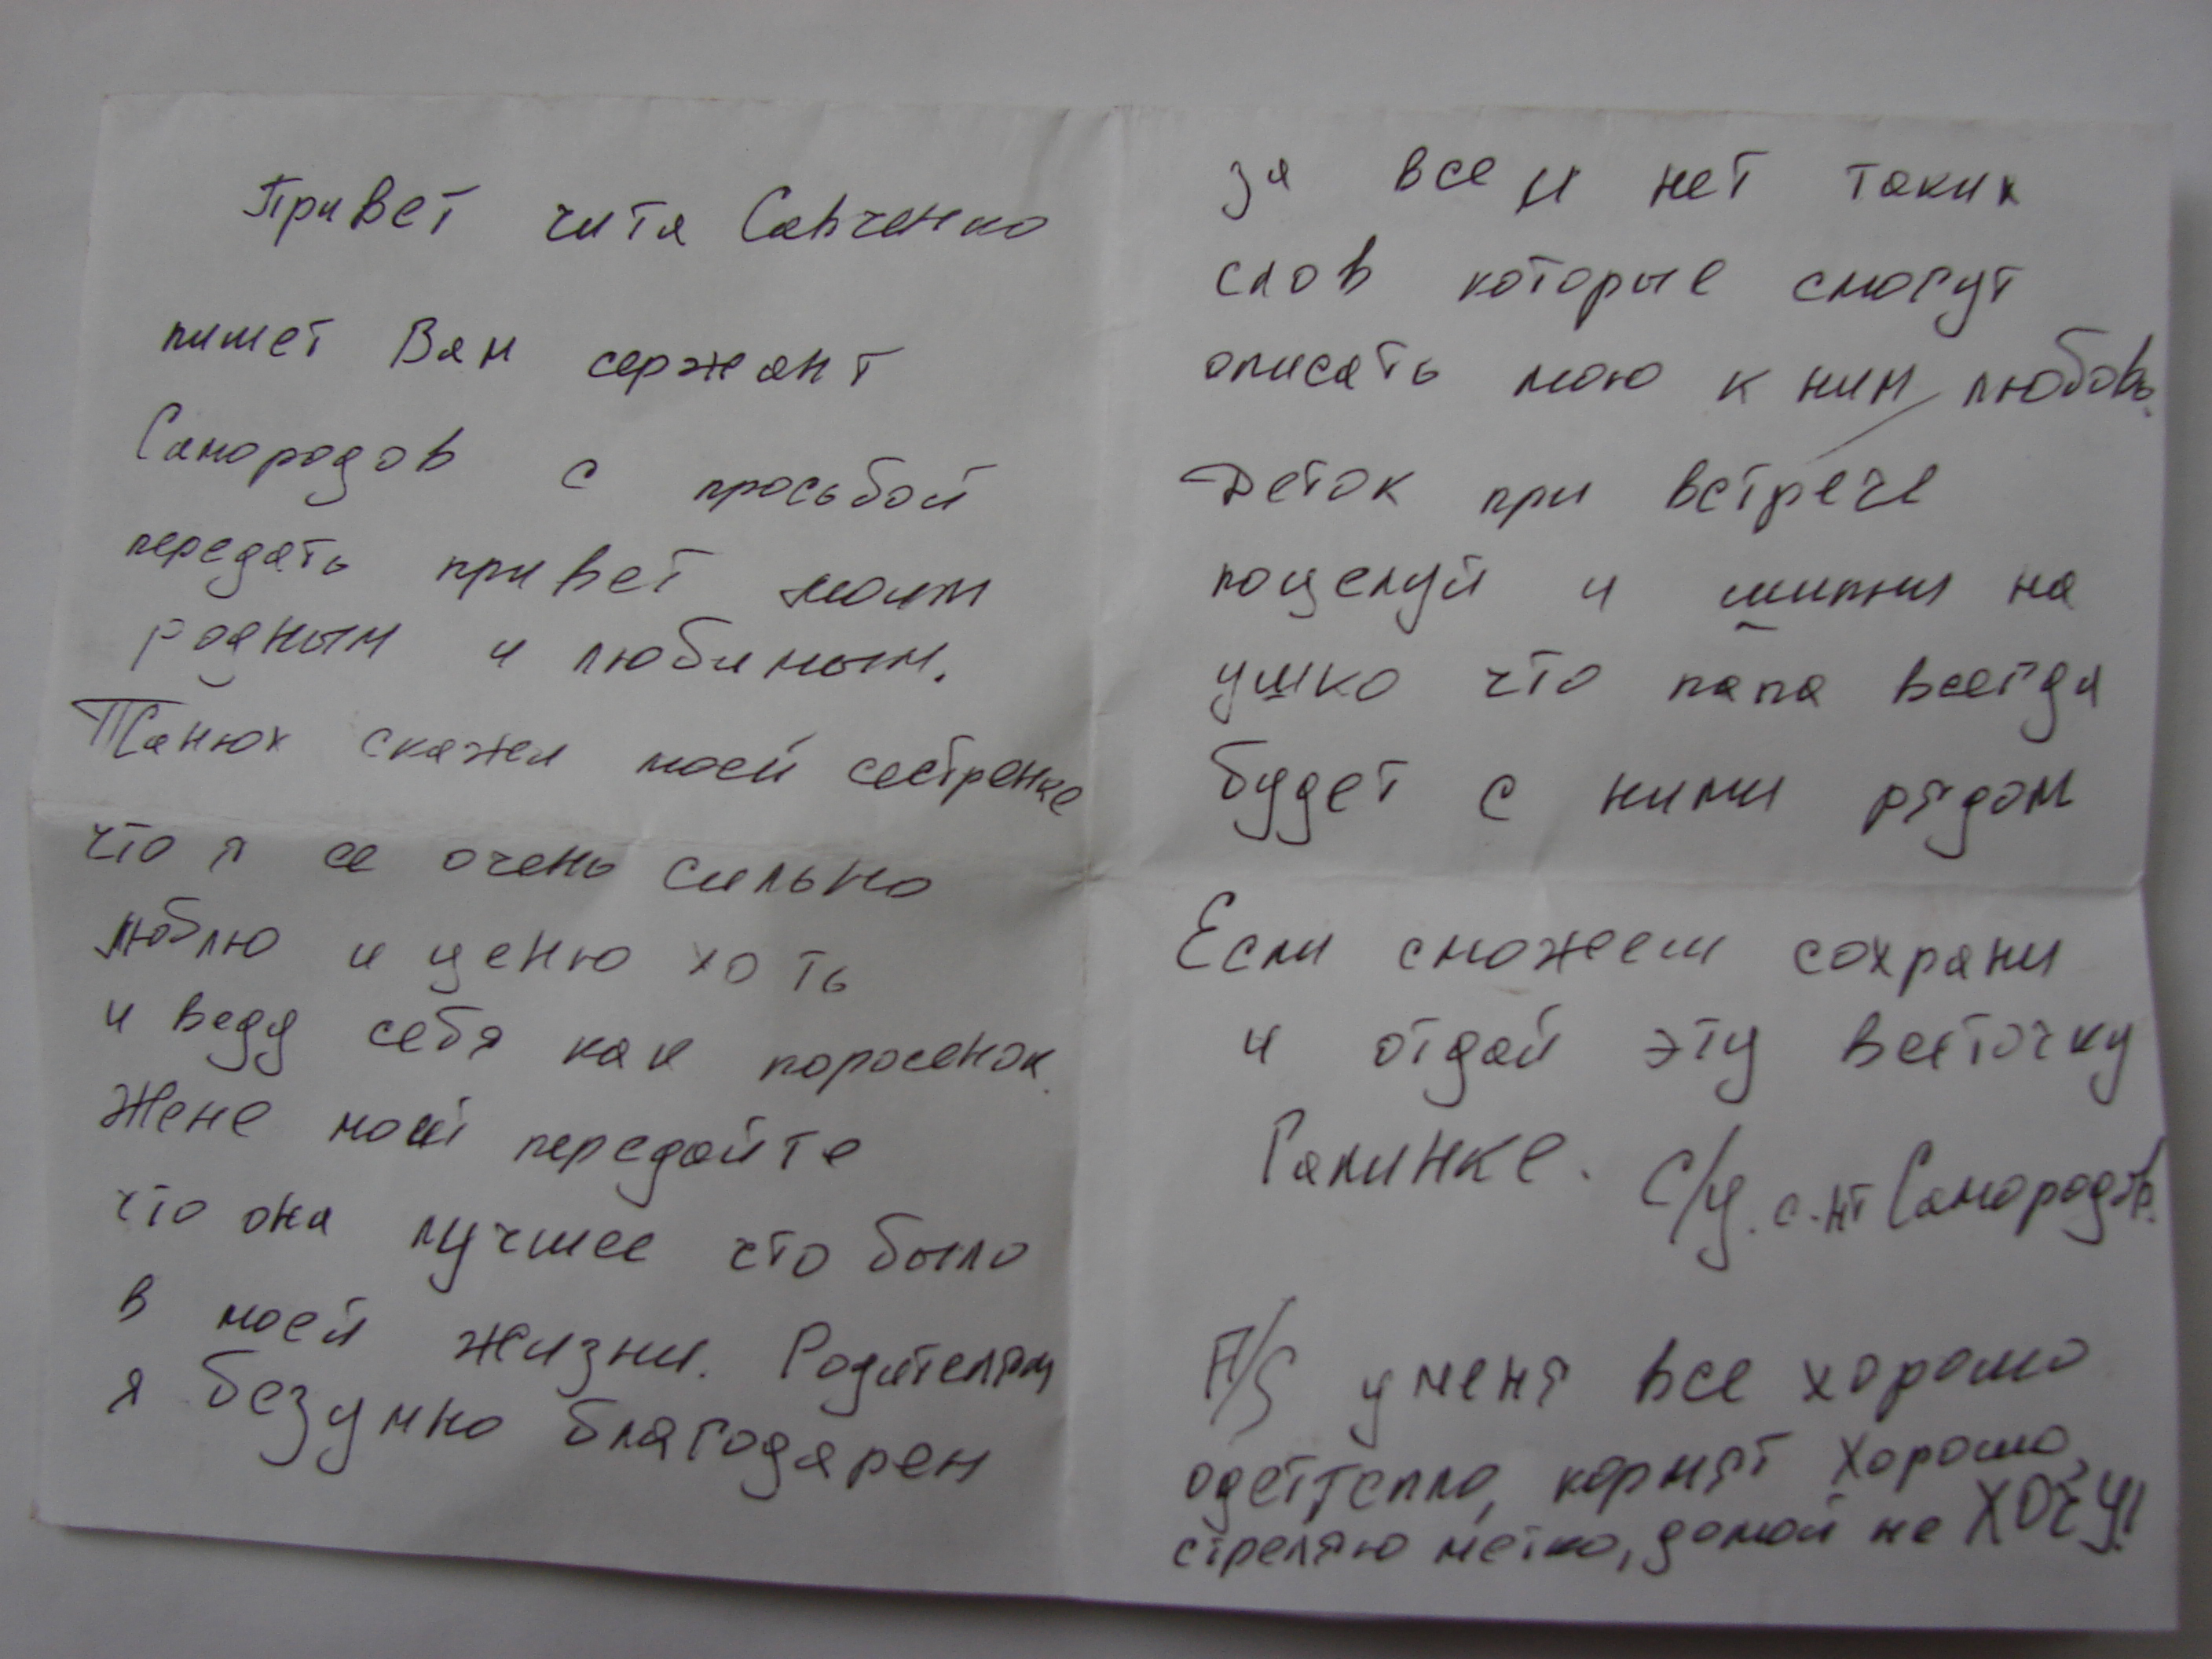 Привет чита Савченко
пишет Вам сержант
Самородов с просьбой
передать привет моим
родным и любимым.
Танюх скажи моей сестренке
что я ее очень сильно
люблю и ценю хоть
и веду себя как поросенок.
Жене моей передайте
что она лучшее что было
в моей жизни. Родителям
я безумно благодарен
за все и нет таких
слов которые смогут
описать мою к ним любовь.
Деток при встрече
поцелуй и шипни на
ушко что папа всегда
будет с ними рядом
Если сможеш сохрани
и отдай эту весточку
Галинке. С/у. с-нт Самородов.
P/S у меня все хорошо
одет тепло, кормят хорошо,
стреляю метко, домой не ХОЧУ!